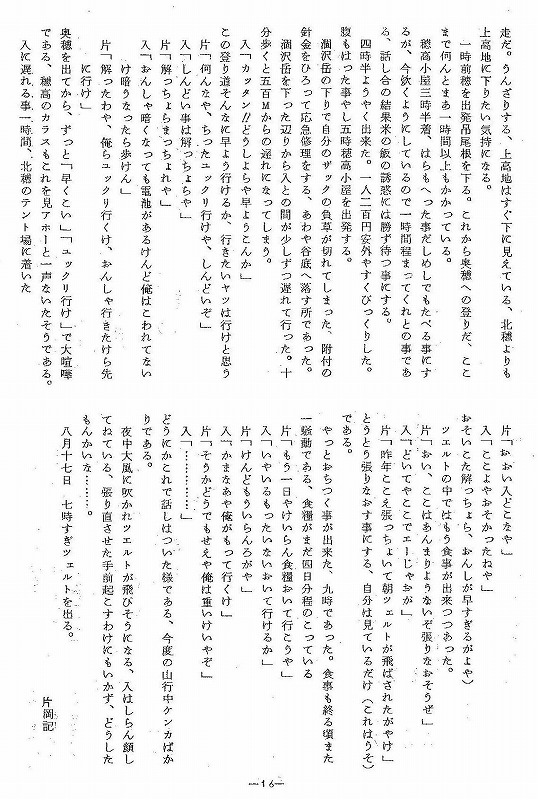 走だ。うんざりする、上高地はすぐ下に見えている、北穂よりも
上高地に下りたい気持になる。
一時前穂を出発吊尾根を下る。これから奥穂への登りだ、ここ
まで何んとまあ一時間以上もかかっている。
穂高小屋三時半着、はらもへった事だしめしでもたべる事にす
るが、今炊くようにしているので一時間程まってくれとの事であ
る、話し合の結果米の飯の誘惑には勝ず待つ事にする。
四時半ようやく出来た。一人二百円安外やすくびっくりした。
腹もはった事やし五時穂高小屋を出発する。
涸沢岳の下りで自分のザックの負革が切れてしまった、附付の
針金をひろって応急修理をする、あわや谷底へ落す所であった。
涸沢岳を下った辺りから入との間が少しずつ遅れて行った。十
分歩くと五百Mからの遅れになってしまう。
入「カッタン!!どうしよらや早ようこんか」
この登り道そんなに早よう行けるか、行きたいヤツは行けと思う
片「何んなや、ちったユックリ行けや、しんどいぞ」
入「しんどい事は解っちょらや」
片「解っちょらまっちょれや」
入「おんしゃ暗くなっても電池があるけんど俺はこわれてない
け暗うなったら歩けん」
片「解ったわや、俺らユックリ行くけ、おんしゃ行きたけら先
に行け」
奥穂を出てから、ずっと「早くこい」「ユックリ行け」で大喧嘩
である、穂高のカラスもこれを見アホーと一声ないたそうである。
入に遅れる事一時間、北穂のテント場に着いた
片「おおい入どこなや」
入「ここよやおそかったねや」
おそいこた解っちょら、おんしが早すぎるがよや)
ツエルトの中ではもう食事が出来つつあった。
片「おい、ここはあんまりようないぞ張りなおそうぜ」
入「どいてやここでエーじゃおが」
片「昨年ここえ張っちょいて朝ツェルトが飛ばされたがやけ」
とうとう張りなおす事にする、自分は見ているだけ(これはうそ)
である。
やっとおちつく事が出来た、九時であった。食事も終る頃また
一騒動である、食糧がまだ四日分程のこっている
片「もう一日やけいらん食糧おいて行こうや」
入「いやいるもったいないおいて行けるか」
片「けんどもういらんろがや」
入「かまなあや俺がもって行くけ」
片「そうかどうでもせえや俺は重いけいやぞ」
入「…………」
どうにかこれで話しはついた様である、今度の山行中ケンカばか
りである。
夜中大風に吹かれツエルトが飛びそうになる、入はしらん顔し
てねている、張り直させた手前起こすわけにもいかず、どうした
もんかいな………。
八月十七日 七時すぎツェルトを出る。
片岡記
—16—